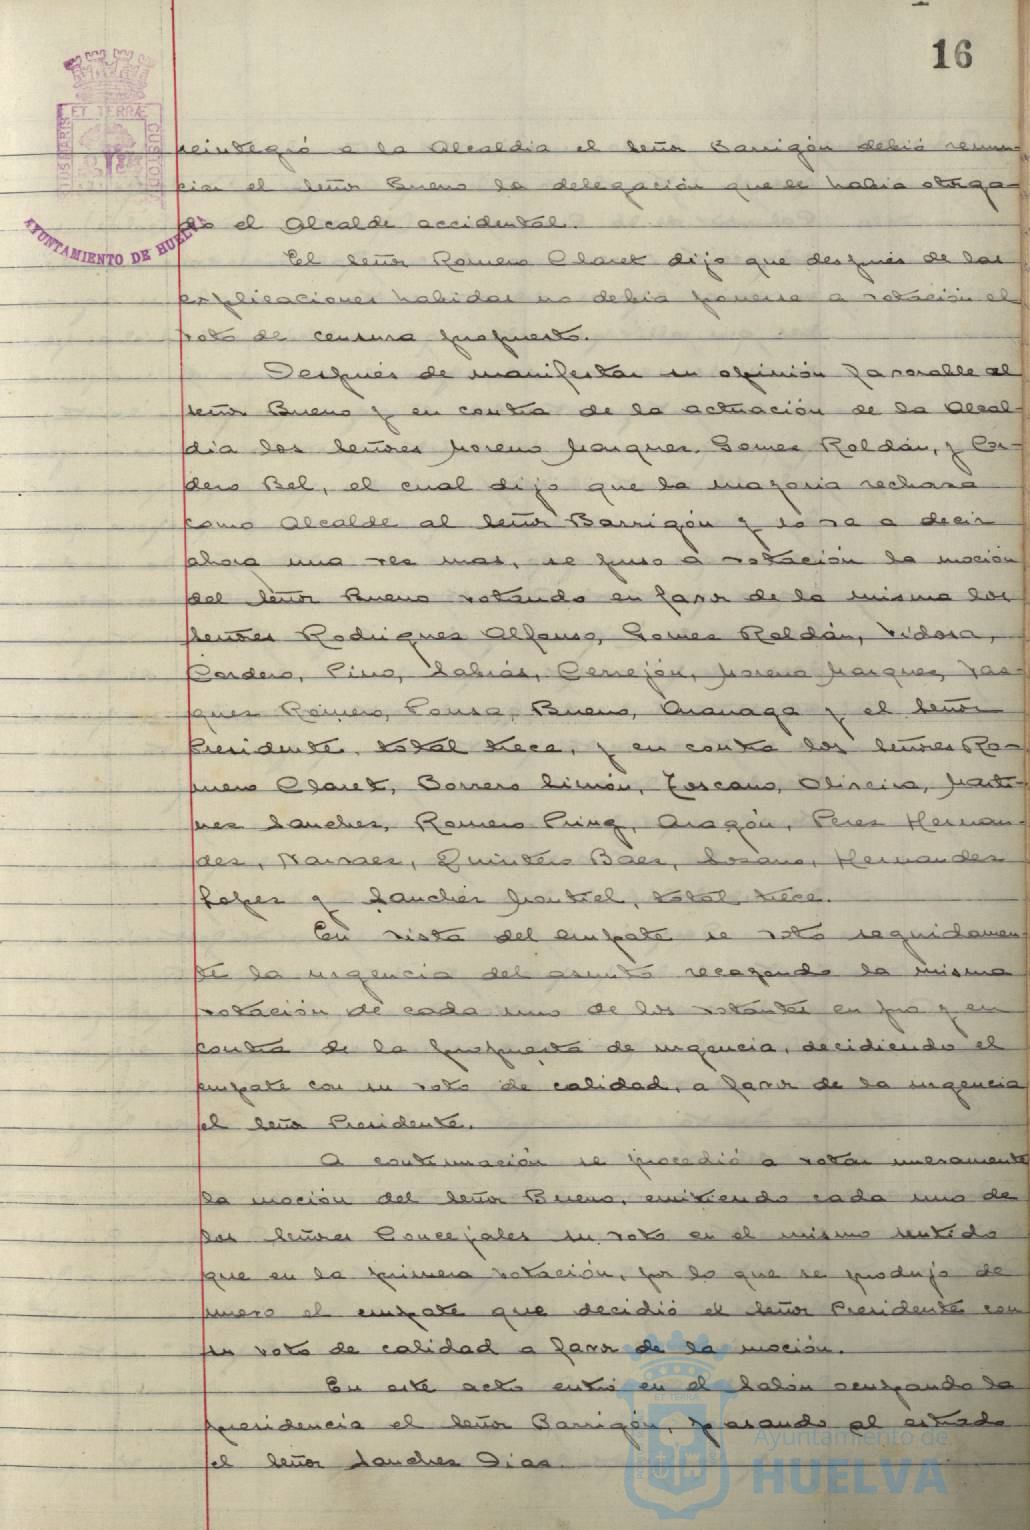 16
ET TERRÆ
CUSTODI
US MARIS
AYUNTAMIENTO DE HUELVA
reintegró a la Alcaldia el señor Barrigón debió renun-
ciar el señor Bueno la delegación que le habia otorga-
do el Alcalde accidental.
El señor Romero Claret dijo que después de las
explicaciones habidas no debia ponerse a votación el
voto de censura propuesto.
Después de manifestar su opinión favorable al
señor Bueno y en contra de la actuación de la Alcal-
dia los señores Moreno Marquez, Gomez Roldán, y Cor-
dero Bel, el cual dijo que la mayoria rechaza
como Alcalde al señor Barrigón y lo va a decir
ahora una vez mas, se puso a votación la moción
del señor Bueno votando en favor de la misma los
señores Rodriguez Alfonso, Gomez Roldán, Vidosa,
Cordero, Pino, Sabrás, Cerrejón, Moreno Marquez, Vaz-
quez Romero, Ponsa, Bueno, Aranaga y el señor
Presidente, total trece, y en contra los señores Ro-
mero Claret, Borrero Limón, Toscano, Oliveira, Marti-
nez Sanchez, Romero Puig, Aragón, Perez Hernan-
dez, Narvaez, Quintero Baez, Lozano, Hernandez
Lopez y Sanchez Montiel, total trece.
En vista del empate se votó seguidamen-
te la urgencia del asunto recayendo la misma
votación de cada uno de los votantes en pro y en
contra de la propuesta de urgencia, decidiendo el
empate con su voto de calidad, a favor de la urgencia
el señor Presidente.
A continuación se procedió a votar nuevamente
la moción del señor Bueno, emitiendo cada uno de
los señores Concejales su voto en el mismo sentido
que en la primera votación, por lo que se produjo de
nuevo el empate que decidió el señor Presidente con
su voto de calidad a favor de la moción.
En este acto entró en el Salón ocupando la
presidencia el señor Barrigón, pasando al estrado
el señor Sanchez Diaz.
Ayuntamiento de
HUELVA